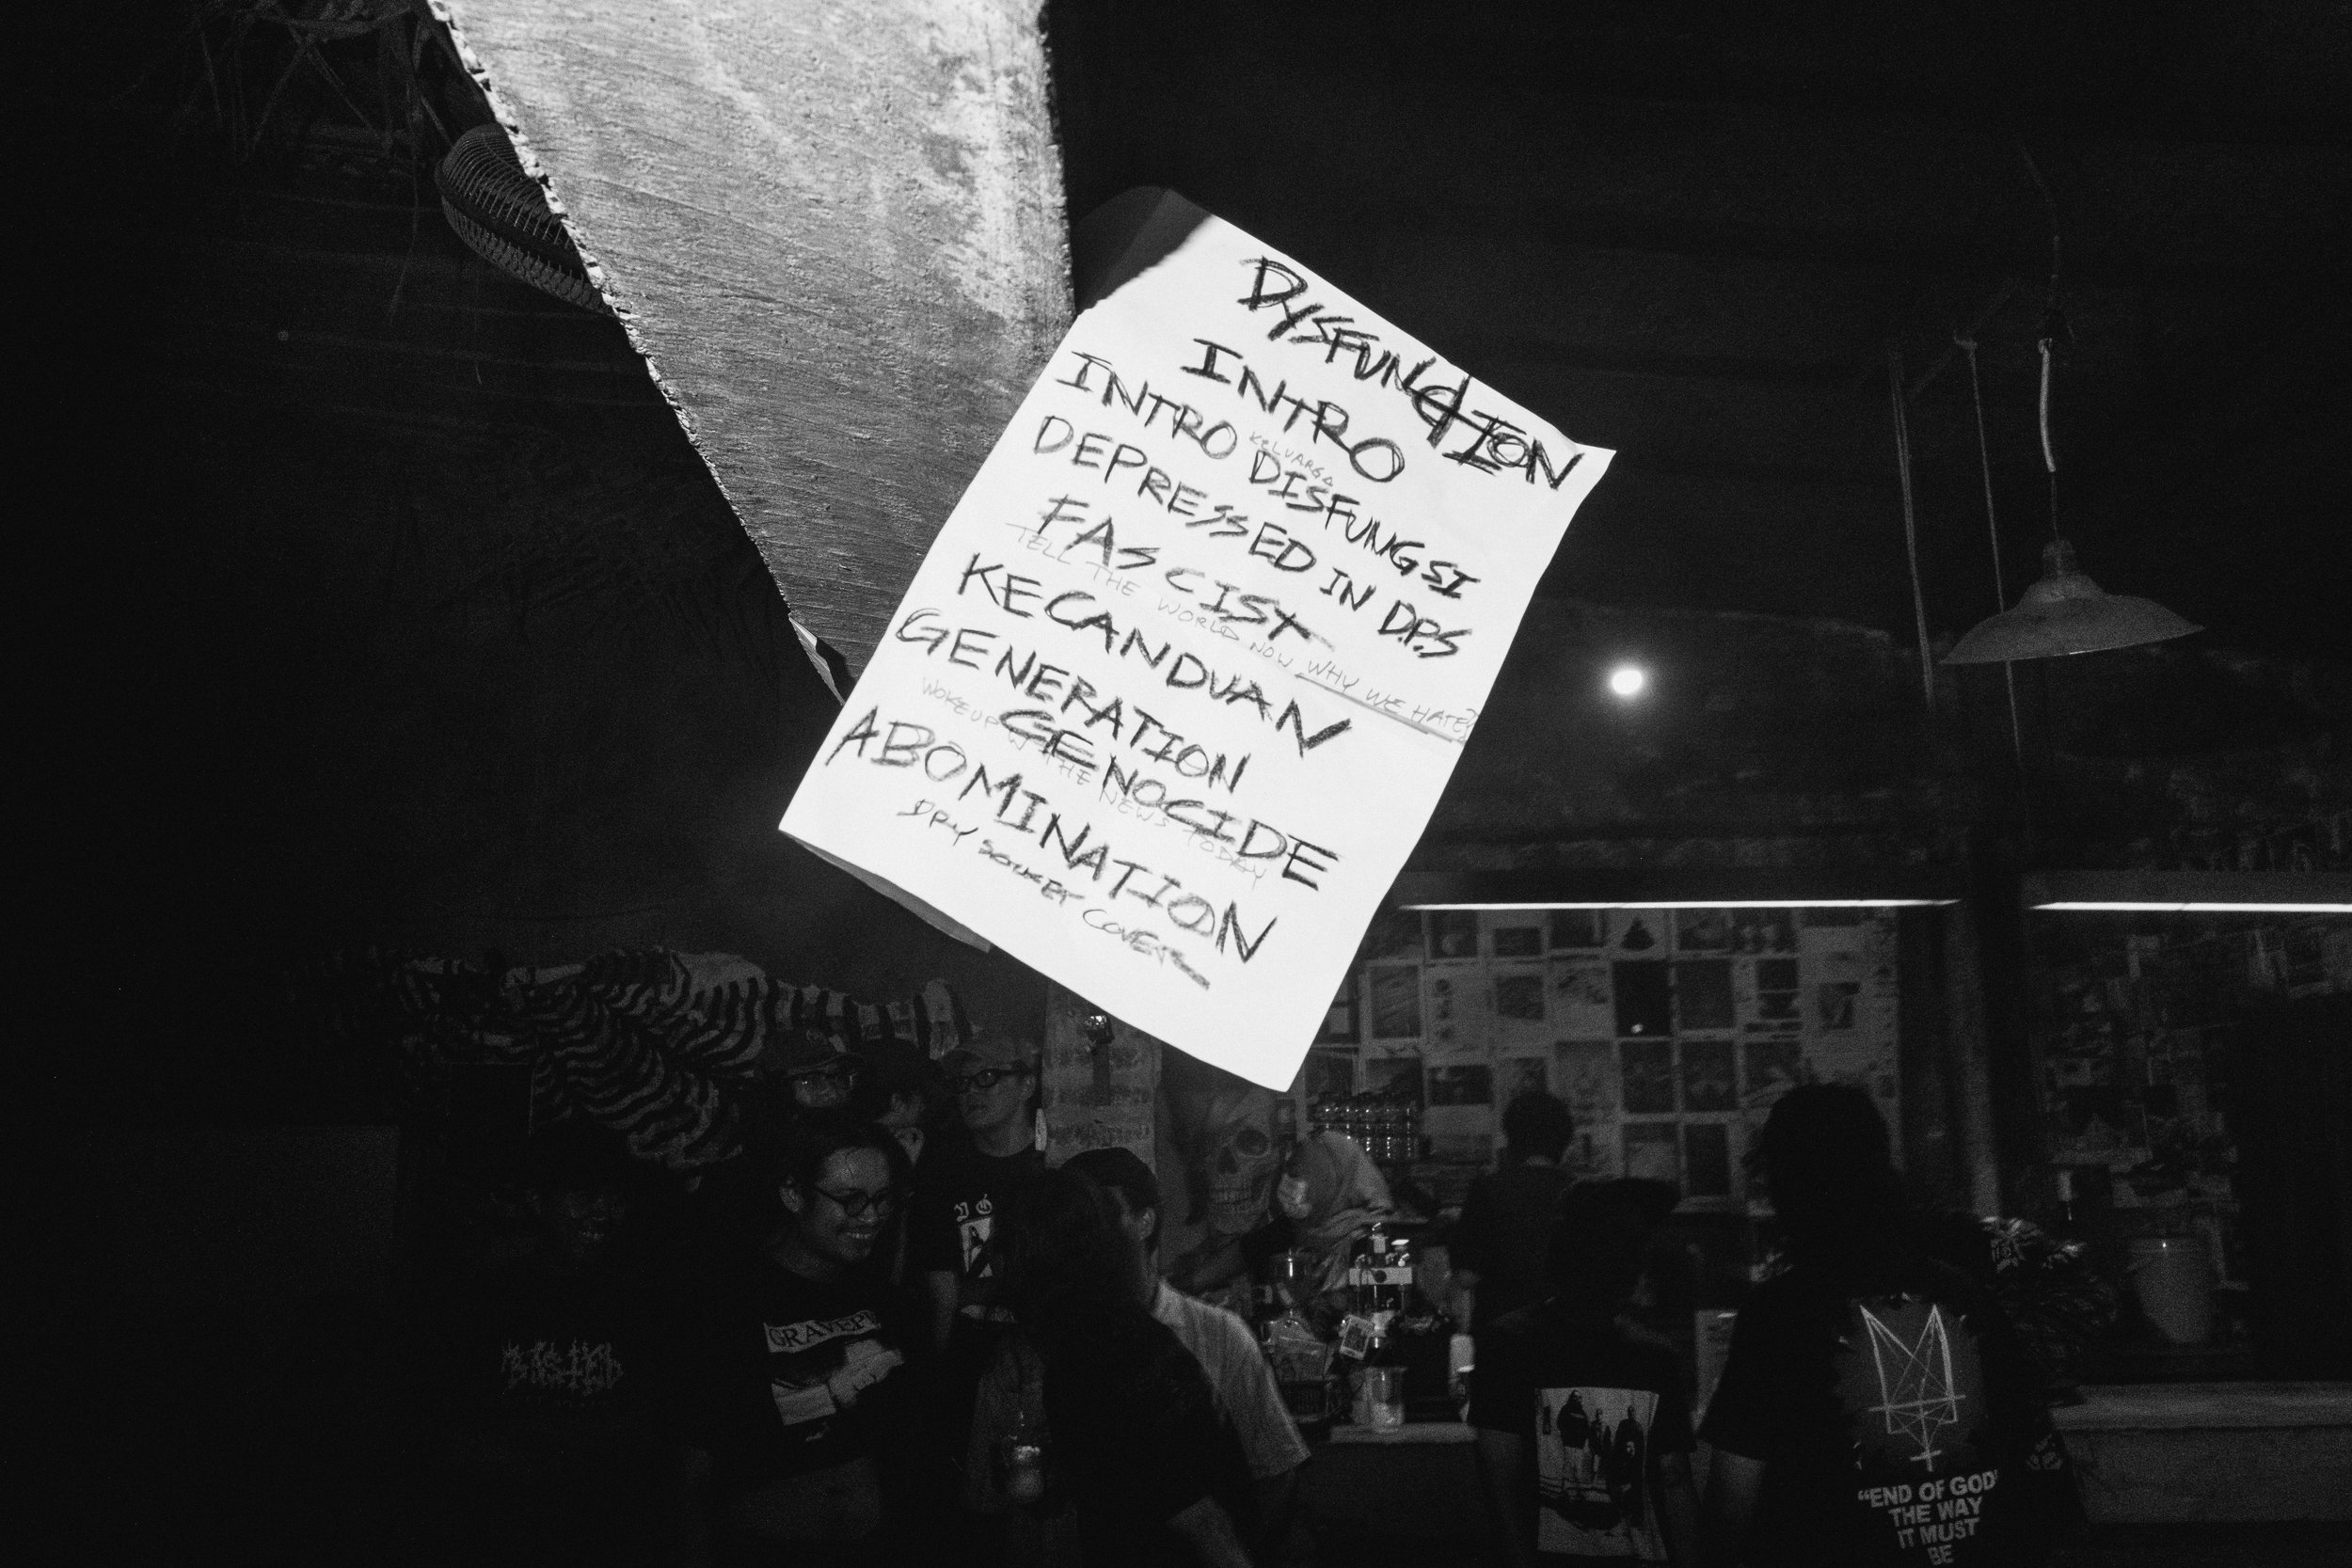 DYSFUNCTION
INTRO
KELUARGA
INTRO DISFUNGSI
DEPRESSED IN D.P.S
FASCIST
TELL THE WORLD NOW WHY WE HATE?
KECANDUAN
GENERATION
GENOCIDE
WOKEUP W THE NEWS TODAY
ABOMINATION
DRY SOCKET COVER
"END OF GOD"
THE WAY
IT MUST
BE